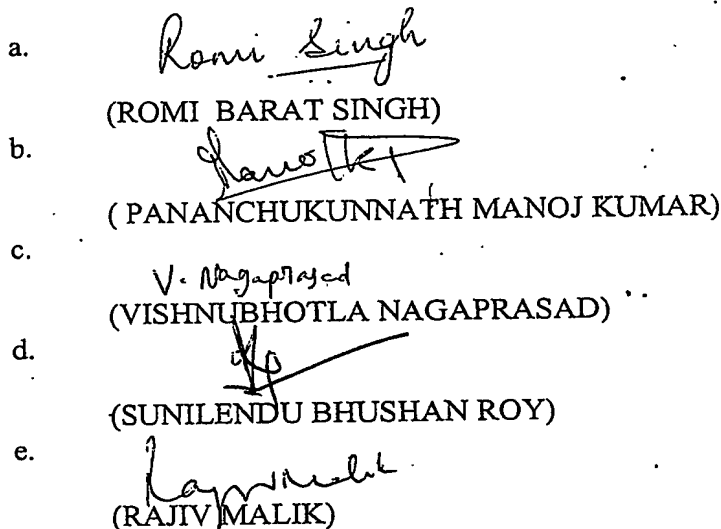 a.
Romi Singh
(ROMI BARAT SINGH)
b.
(PANANCHUKUNNATH MANOJ KUMAR)
c.
V. Nagaprasad
(VISHNUBHOTLA NAGAPRASAD)
d.
(SUNILENDU BHUSHAN ROY)
e.
(RAJIV MALIK)